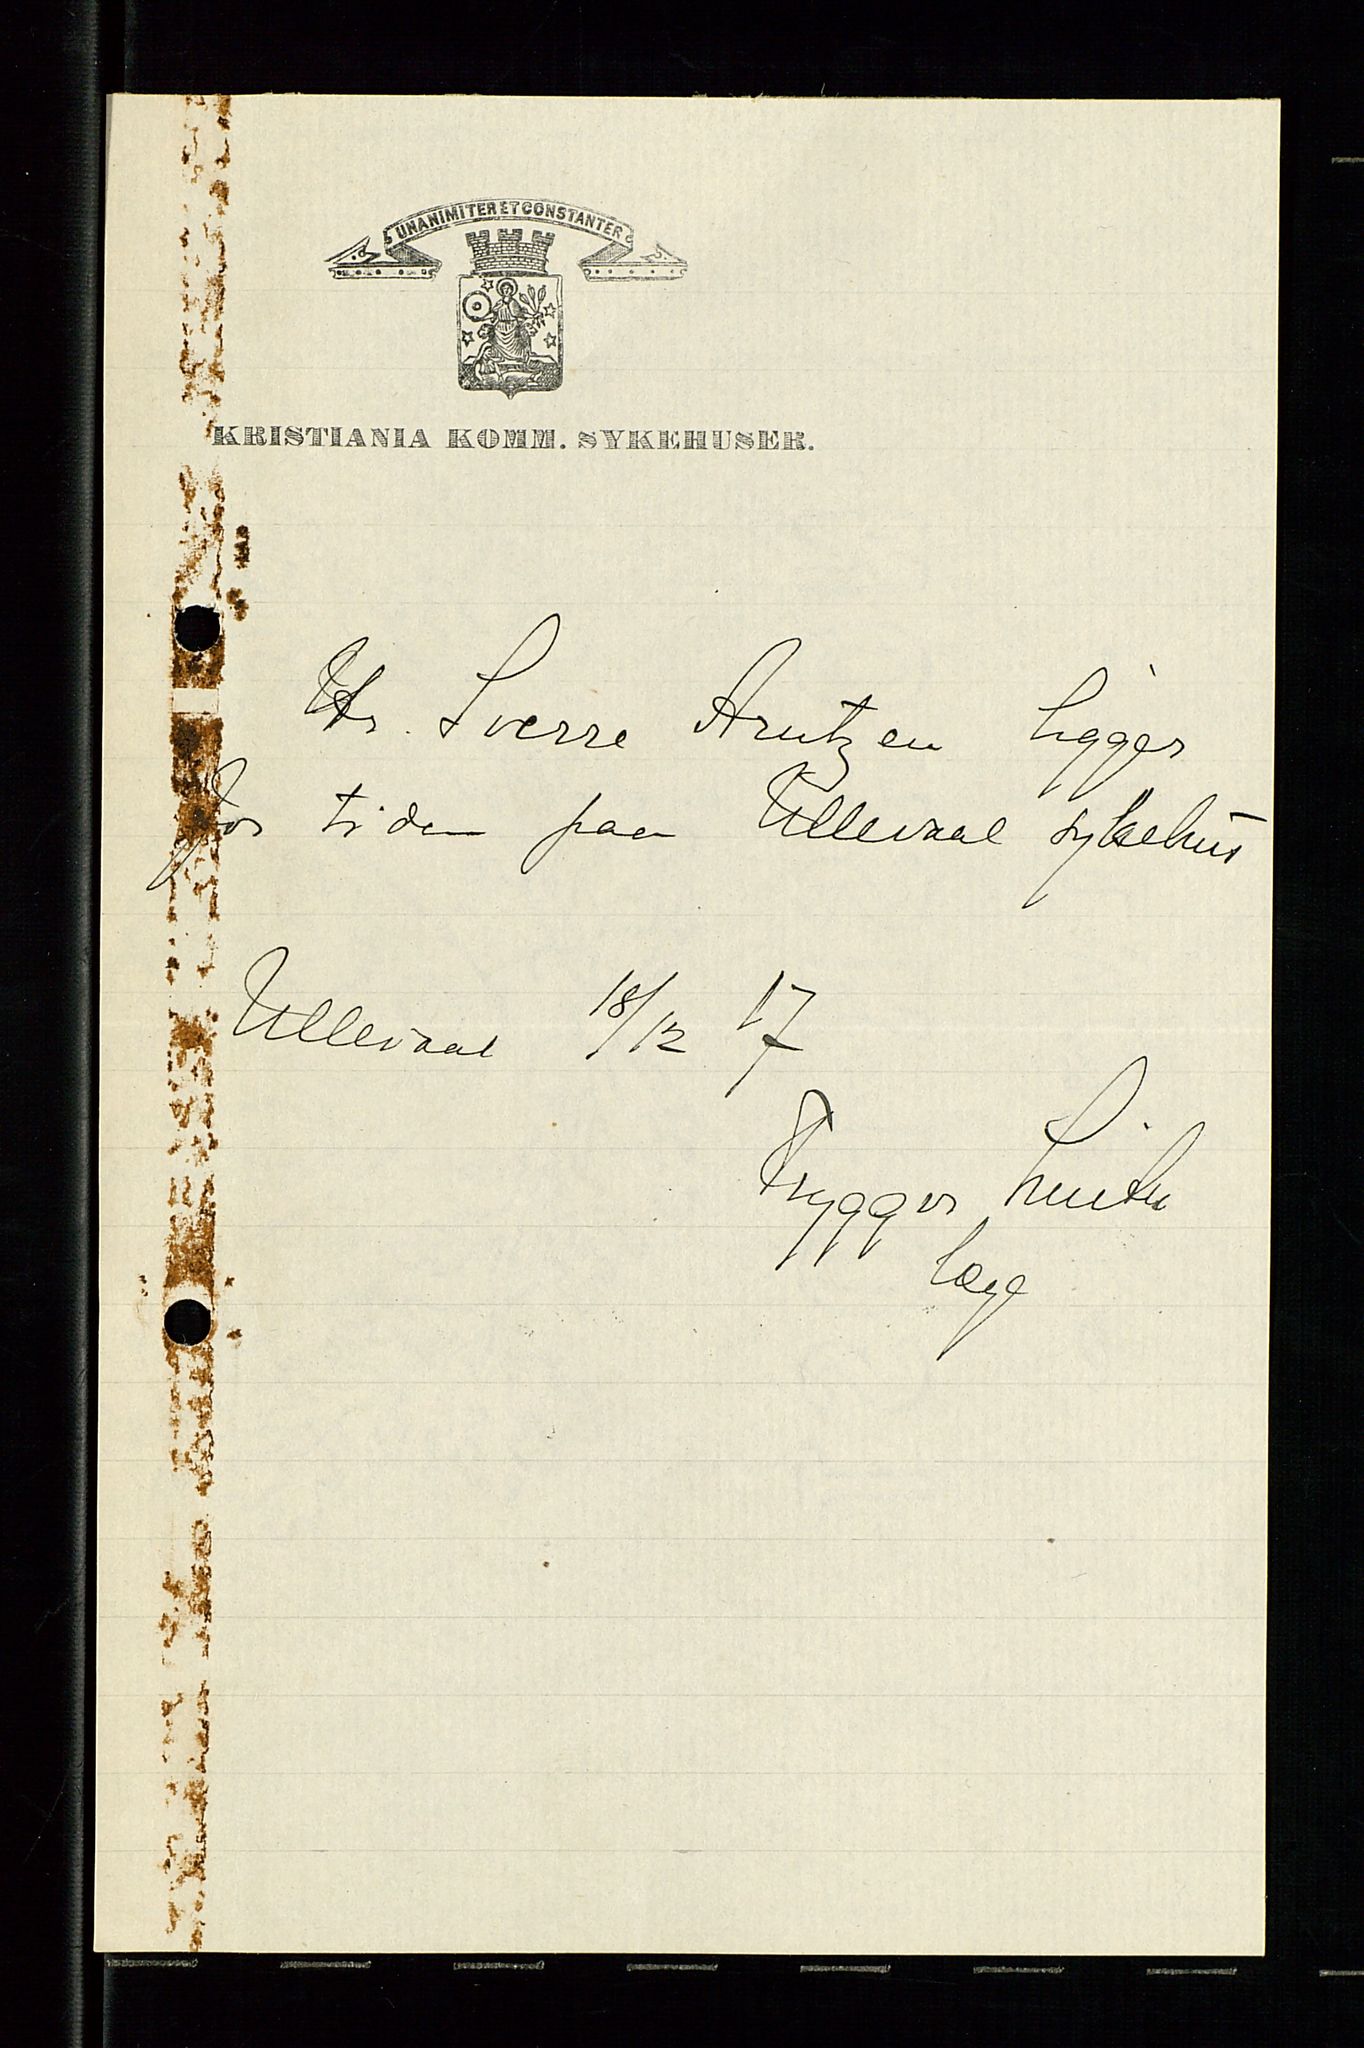 UNANIMITER ET CONSTANTER
KRISTIANIA KOMM. SYKEHUSER.
Hr. Sverre Arntzen ligger
for tiden paa Ullevaal sykehus
Ullevaal 18/12 17
Trygger
læge